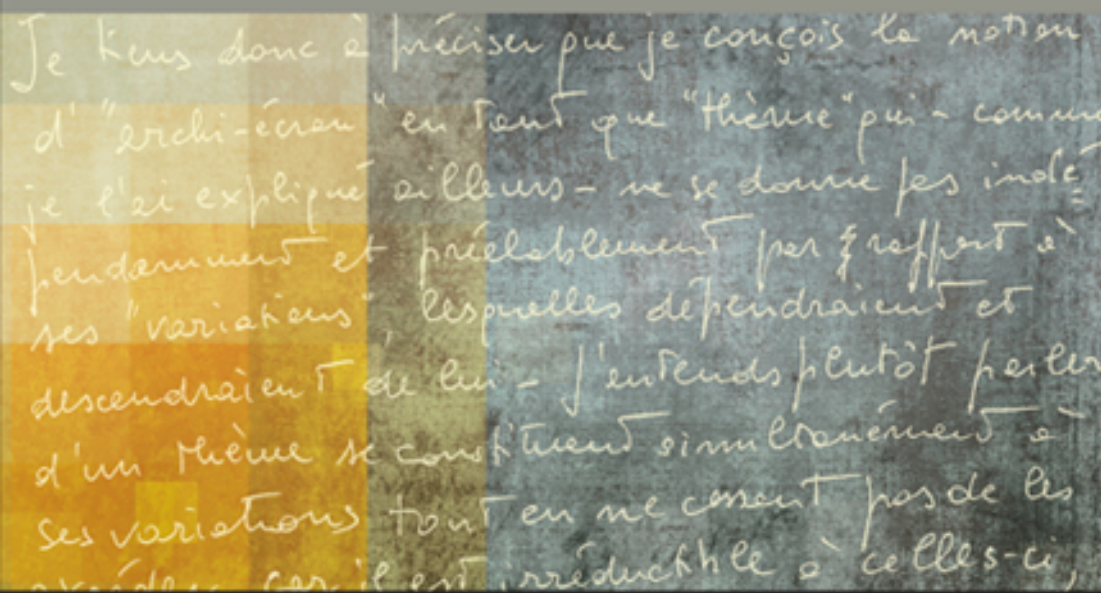 Je tiens donc à préciser que je conçois la notion
d'"archi-écran" en tant que "thème" qui - comme
je l'ai expliqué ailleurs - ne se donne pas indé
pendamment et préalablement par rapport à
ses "variations", lesquelles dépendraient et
descendraient de lui - J'entends plutôt parler
d'un thème se constituant simultanément à
ses variations tout en ne cessant pas de les
excéder, car il est irréductible à celles-ci,